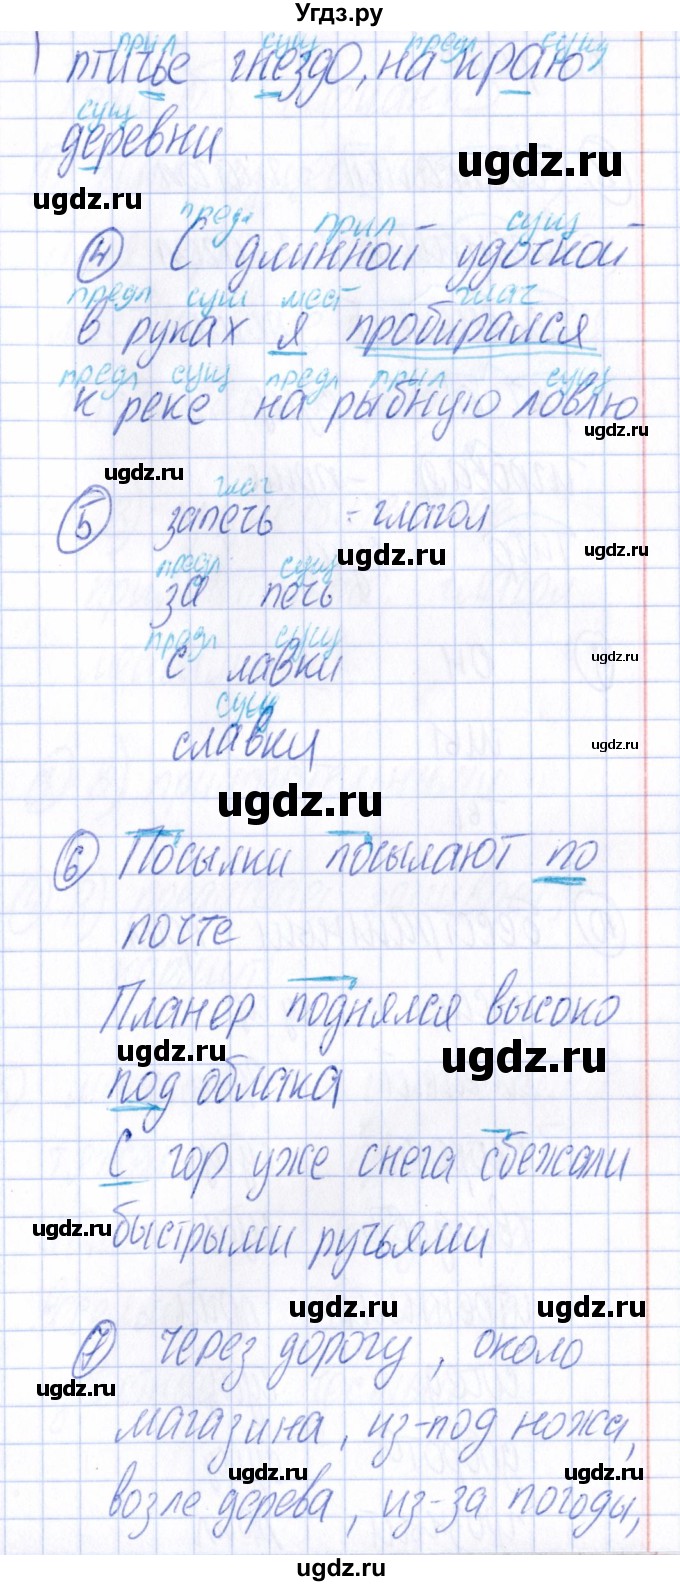 Угдз.ру
прил сущ предл сущ
птичье гнездо, на краю
сущ
деревни
ugdz.ru
ugdz.ru
предл прил сущ
4 С длинной удочкой
предл сущ мест глаг
в руках я пробирался
предл сущ предл прил сущ
к реке на рыбную ловлю
ugdz.ru
ugdz.ru
глаг
5 запечь - глагол
ugdz.ru
ugdz.ru
предл сущ
за печь
предл сущ
с лавки
ugdz.ru
сущ
славки
ugdz.ru
ugdz.ru
6 Посылки посылают по
почте
Планер поднялся высоко
ugdz.ru
ugdz.ru
под облака
С гор уже снега сбежали
ugdz.ru
быстрыми ручьями
ugdz.ru
ugdz.ru
7 через дорогу, около
ugdz.ru
магазина, из-под ножа,
ugdz.ru
ugdz.ru
возле дерева, из-за погоды,
ugdz.ru